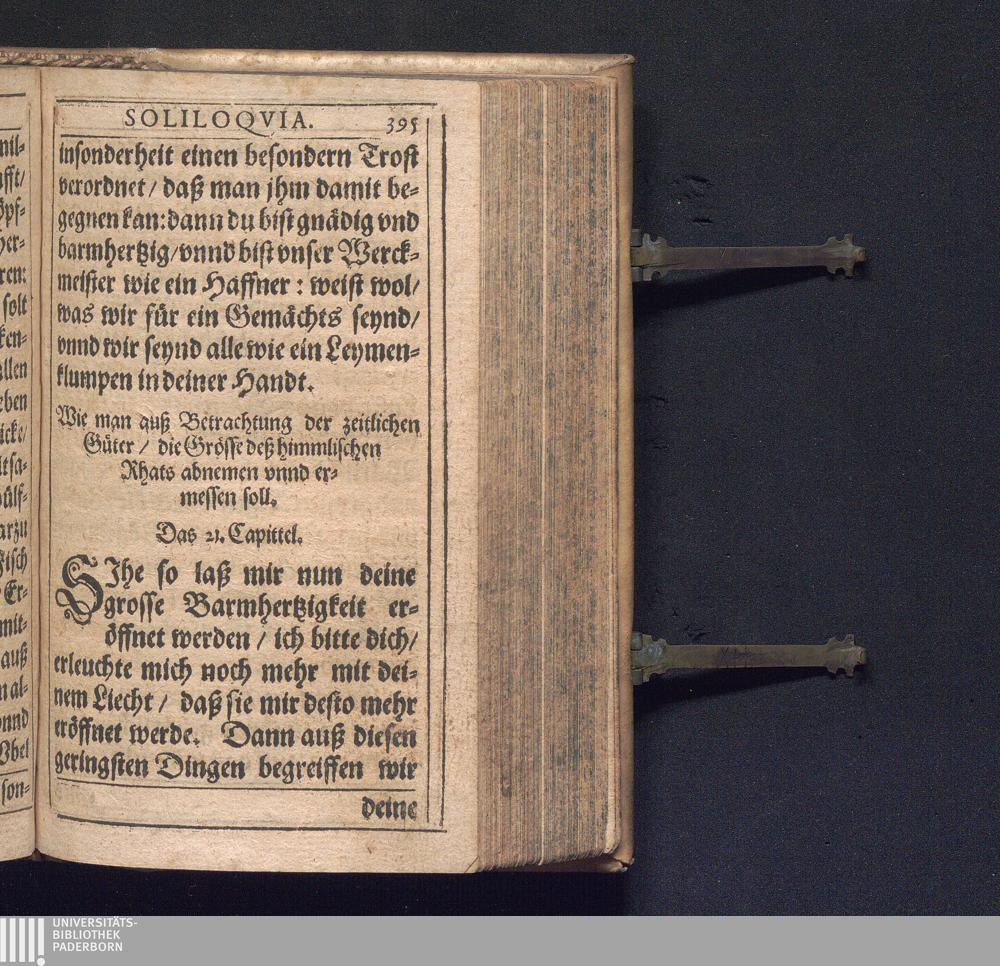 SOLILOQVIA. 395
insonderheit einen besondern Trost
verordnet / daß man jhm damit be-
gegnen kan: dann du bist gnädig vnd
barmhertzig / vnnd bist vnser Werck-
meister wie ein Haffner : weist wol /
was wir für ein Gemächts seynd /
vnnd wir seynd alle wie ein Leymen-
klumpen in deiner Handt.
Wie man auß Betrachtung der zeitlichen
Güter / die Grösse deß himmlischen
Rhats abnemen vnnd er-
messen soll.
Das 21. Capittel.
SIhe so laß mir nun deine
grosse Barmhertzigkeit er-
öffnet werden / ich bitte dich /
erleuchte mich noch mehr mit dei-
nem Liecht / daß sie mir desto mehr
eröffnet werde. Dann auß diesen
geringsten Dingen begreiffen wir
deine
UNIVERSITÄTS-
BIBLIOTHEK
PADERBORN